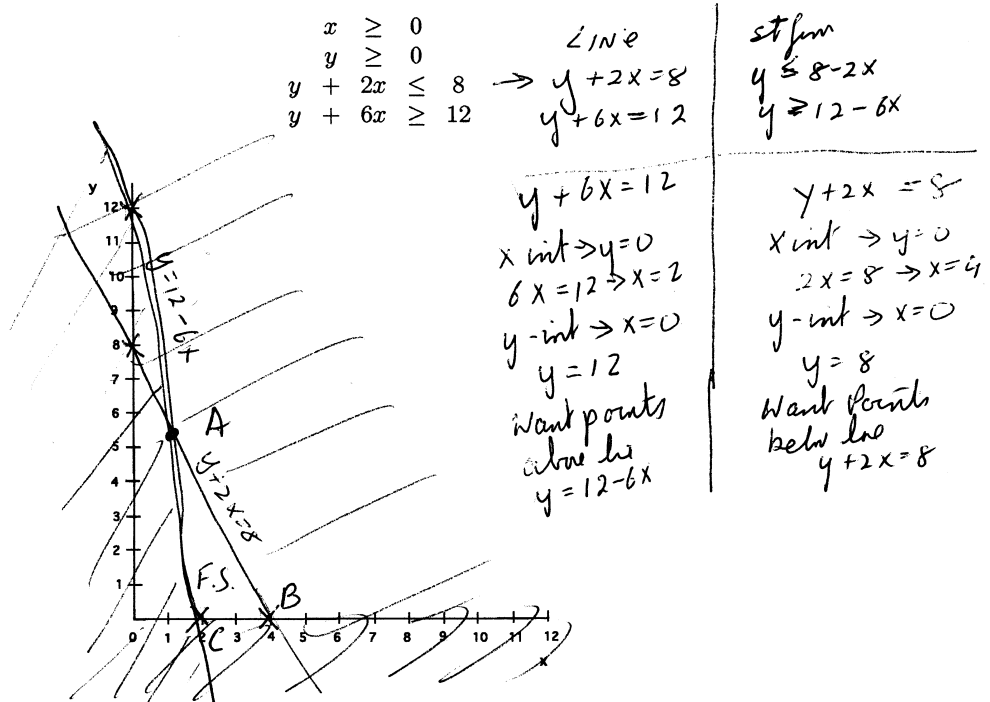 x ≥ 0
y ≥ 0
y + 2x ≤ 8
y + 6x ≥ 12
→
LINE
y + 2x = 8
y + 6x = 12
st form
y ≤ 8 - 2x
y ≥ 12 - 6x
y + 6x = 12
x int → y = 0
6x = 12 → x = 2
y-int → x = 0
y = 12
Want points
above line
y = 12 - 6x
y + 2x = 8
x int → y = 0
2x = 8 → x = 4
y-int → x = 0
y = 8
Want Points
below line
y + 2x = 8
y
12
11
10
9
8
7
6
5
4
3
2
1
y = 12 - 6x
A
y + 2x = 8
F.S.
B
C
0 1 2 3 4 5 6 7 8 9 10 11 12
x